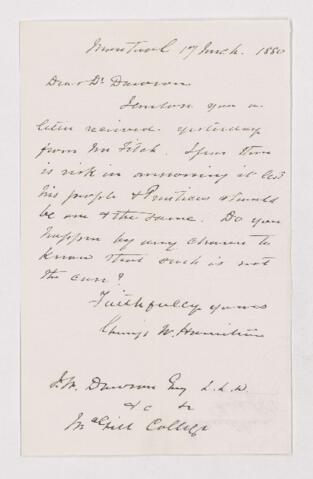 Montreal 17 March. 1880
Dear Dr Dawson
I enclose you a
letter received yesterday
from Mr Fitch. I fear there
is risk in answering it lest
his people & should
be one & the same. Do you
happen by any chance to
know that such is not
the case?
Faithfully yours
W. Hamilton
J. W. Dawson Esq L.L.D.
&c &c
McGill College